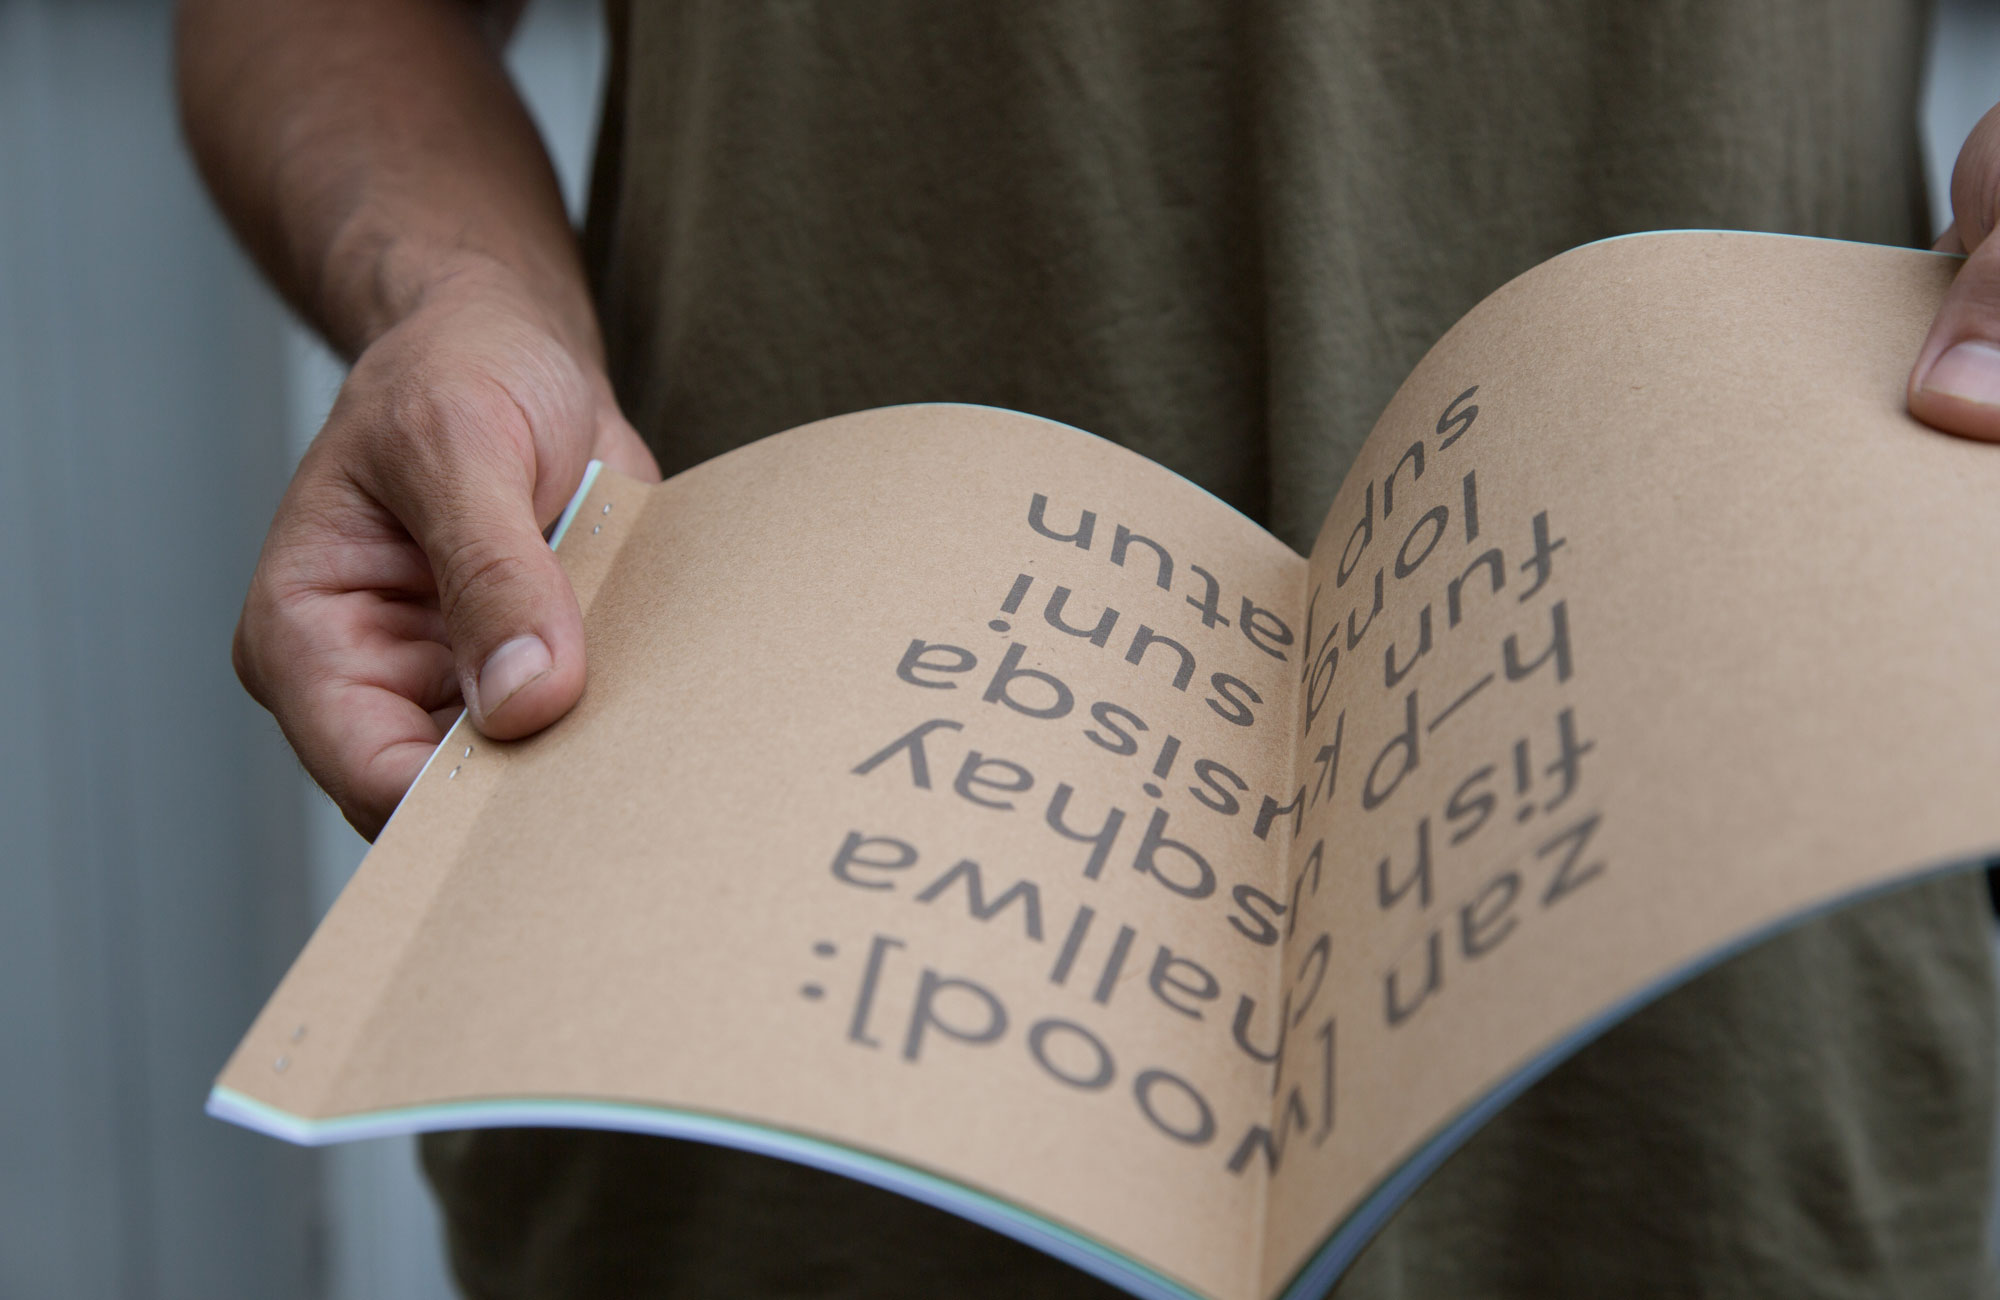 zan [wood]:
fish challwa
h–p usqhay
funn kusisqa
long suni
sup jatun